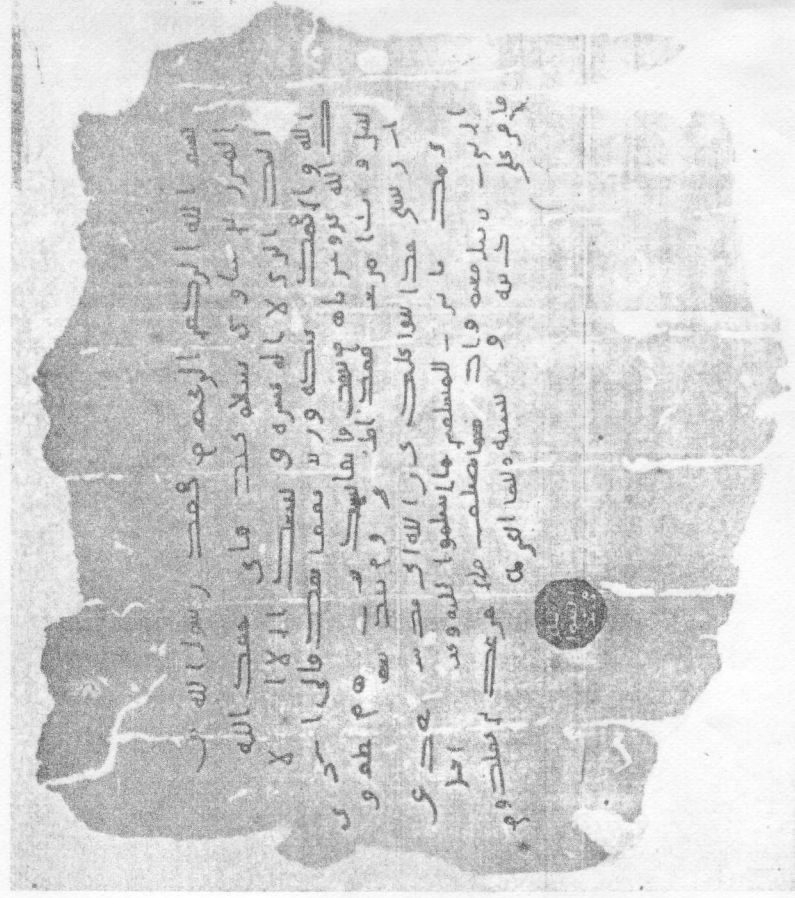 بسم الله الرحمن الرحيم من محمد رسول الله الى
المنذر بن ساوى سلام عليك فاني احمد الله
اليك الذي لا اله غيره واشهد ان لا اله الا
الله وان محمدا عبده ورسوله اما بعد فاني اذكرك
الله عز وجل فانه من ينصح فانما ينصح لنفسه وانه من يطع
رسلي ويتبع امرهم فقد اطاعني ومن نصح لهم فقد نصح لي
وان رسلي قد اثنوا عليك خيرا واني قد شفعتك في
قومك فاترك للمسلمين ما اسلموا عليه وعفوت عن اهل
الذنوب فاقبل منهم وانك مهما تصلح فلن نعزلك عن عملك ومن
اقام على يهودية او مجوسية فعليه الجزية